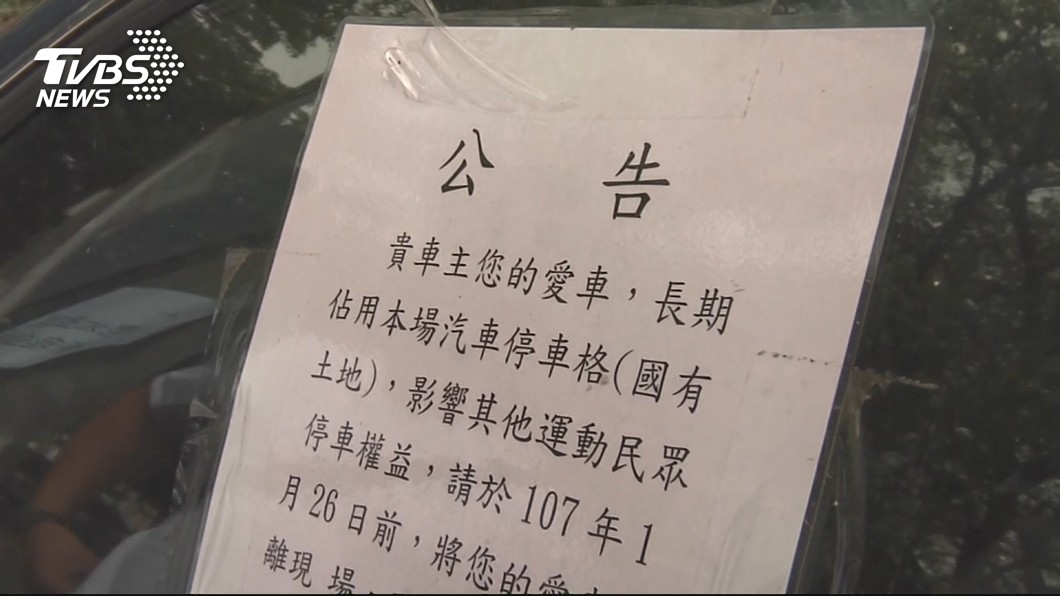 TVBS
NEWS
公告
貴車主您的愛車，長期
佔用本場汽車停車格(國有
土地)，影響其他運動民眾
停車權益，請於107年1
月26日前，將您的愛
離現場